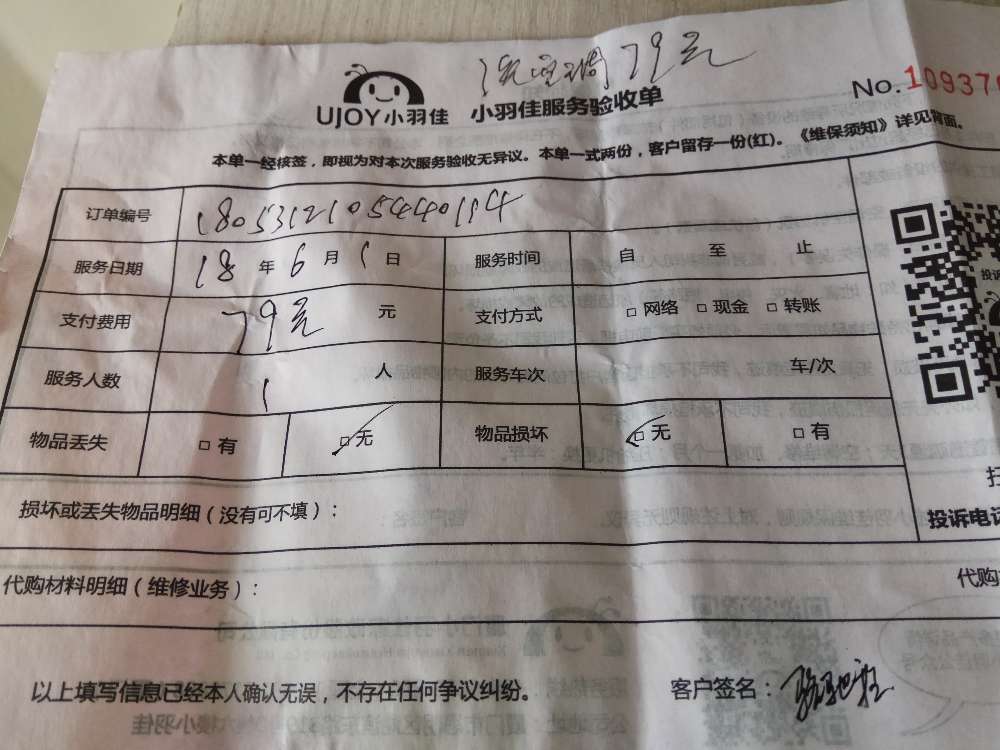 洗空调79元
UJOY小羽佳 小羽佳服务验收单 No.109370
本单一经核签，即视为对本次服务验收无异议。本单一式两份，客户留存一份(红)。《维保须知》详见背面。
订单编号 1805312105440194
服务日期 18 年 6 月 1 日 服务时间 自 至 止
支付费用 79元 元 支付方式 □ 网络 □ 现金 □ 转账
服务人数 1 人 服务车次 车/次
物品丢失 □ 有 □ 无 物品损坏 □ 无 □ 有
损坏或丢失物品明细（没有可不填）：
投诉电话
代购材料明细（维修业务）： 代购
以上填写信息已经本人确认无误，不存在任何争议纠纷。 客户签名：